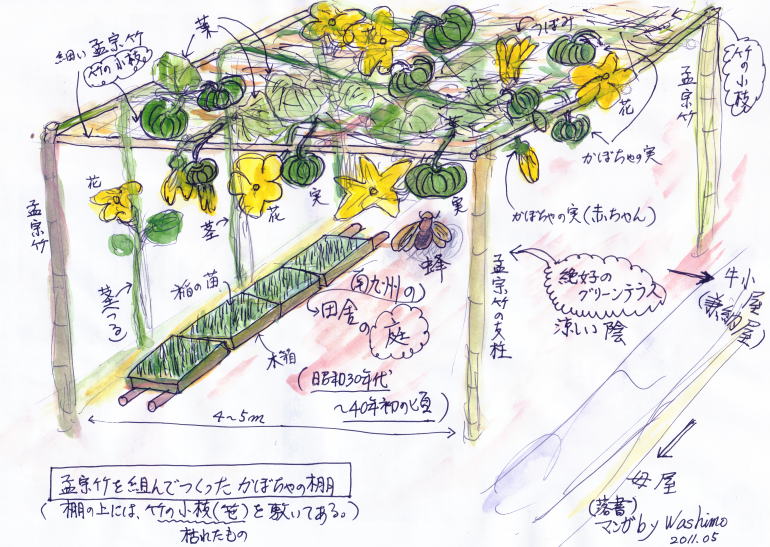 葉
つぼみ
花
細い孟宗竹
竹の小枝
孟宗竹
竹の小枝
花
かぼちゃの実
かぼちゃの実(赤ちゃん)
孟宗竹
花
茎
花
実
実
蜂
茎
つる
稲の苗
木箱
南九州の
田舎の
庭
(昭和30年代
～40年初の頃)
孟宗竹の支柱
絶好の
グリーンテラス
涼しい陰
牛小屋
(兼納屋)
母屋
4～5m
孟宗竹を組んでつくったかぼちゃの棚
(棚の上には、竹の小枝(笹)を敷いてある。)
枯れたもの
(落書)
マンガ by Washimo
2011.05